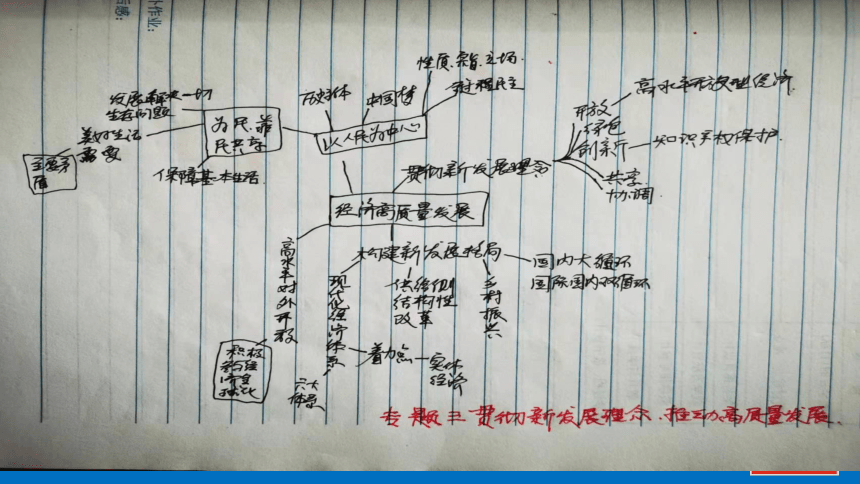 性质.宗旨.立场.
全过程民主
历史主体
中国梦
以人民为中心
发展解决一切
生存问题
美好生活
需要
主要矛
盾
为民.靠
民共享
保障基本生活.
开放
高水平开放型经济.
绿色
创新
知识产权保护.
共享
协调.
贯彻新发展理念
经济高质量发展
构建新发展格局
国内大循环
国际国内双循环
高水平对外开放
现代化经济体系
供给侧
结构性
改革
乡村振兴
着力点
实体
经济
六大
体系
积极
专题三 贯彻新发展理念.推动高质量发展.